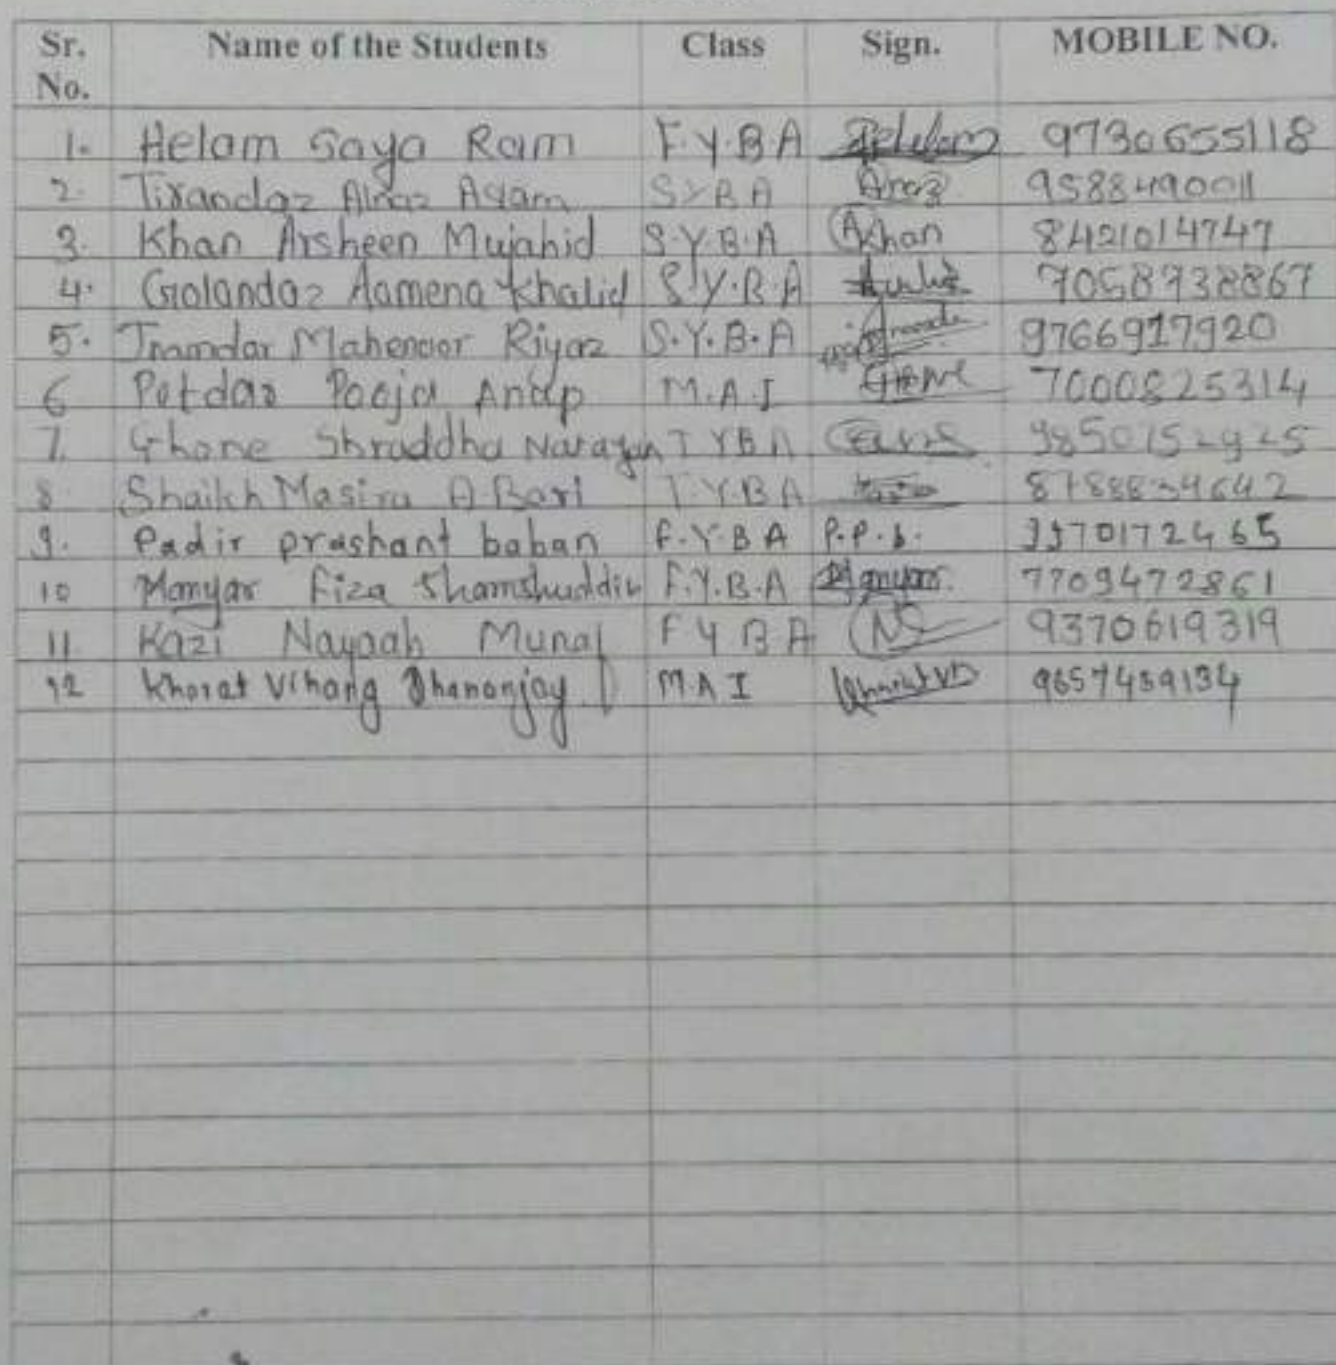 Sr. No. Name of the Students Class Sign. MOBILE NO.
1. Helam Gaya Ram F.Y.B A 9730655118
2. Tirandaz Alnaz Ayam S Y B A 9588490011
3. Khan Arsheen Mujahid S.Y.B.A Akhan 8421014747
4. Golandaz Aamena Khalid S.Y.B.A 7058738867
5. Inamdar Mahenoor Riyaz S.Y.B.A 9766917920
6 Potdar Pooja Anup M.A.I 7000825314
7. Ghone Shraddha Narayan T Y B A 9850152925
8. Shaikh Masira A.Bari T.Y.B A
9. Padir prashant baban F.Y.B A P.P.b.
10 Manyar Fiza Shamshuddin F.Y.B.A Manyar. 7709472861
11 Kazi Nayaah F Y B A 9370619319
12 Khorat Vihang Dhananjay M A I 9657459134